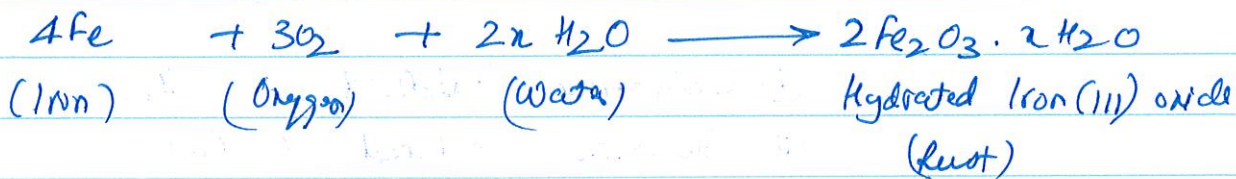 4Fe + 3O2 + 2x H2O ⟶ 2Fe2O3 . xH2O
(Iron) (Oxygen) (Water) Hydrated Iron (III) oxide
(Rust)